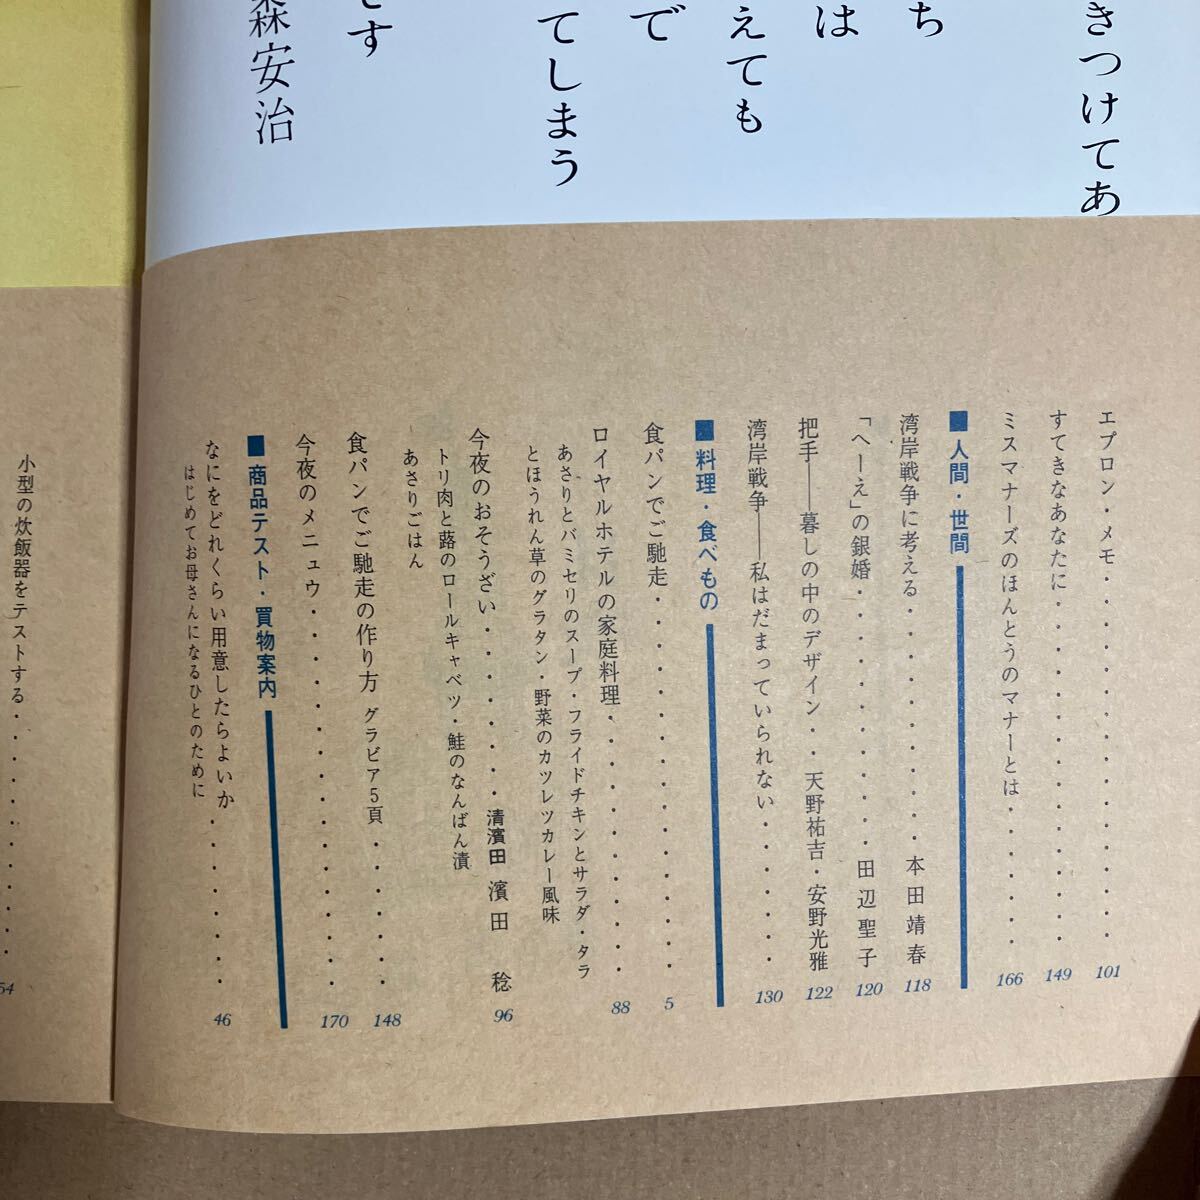 きつけてあ
ち
は
えても
で
てしまう
です
森安治
エプロン・メモ・・・・・・・・・・・・・・・・101
すてきなあなたに・・・・・・・・・・・・・・・149
ミスマナーズのほんとうのマナーとは・・・・・・・166
■人間・世間
湾岸戦争に考える・・・・・・・・・・本田靖春 118
「へーえ」の銀婚・・・・・・・・・・田辺聖子 120
把手――暮しの中のデザイン・・天野祐吉・安野光雅 122
湾岸戦争――私はだまっていられない・・・・・・・130
■料理・食べもの
食パンでご馳走・・・・・・・・・・・・・・・・5
ロイヤルホテルの家庭料理・・・・・・・・・・・・88
あさりとバミセリのスープ・フライドチキンとサラダ・タラ
とほうれん草のグラタン・野菜のカツレツカレー風味
今夜のおそうざい・・・・・・・・清濱田 濱田 稔 96
トリ肉と蕗のロールキャベツ・鮭のなんばん漬
あさりごはん
食パンでご馳走の作り方 グラビア5頁・・・・・・・148
今夜のメニュウ・・・・・・・・・・・・・・・・170
■商品テスト・買物案内
なにをどれくらい用意したらよいか・・・・・・・・46
はじめてお母さんになるひとのために
小型の炊飯器をテストする・・・・・・・・・・・・54